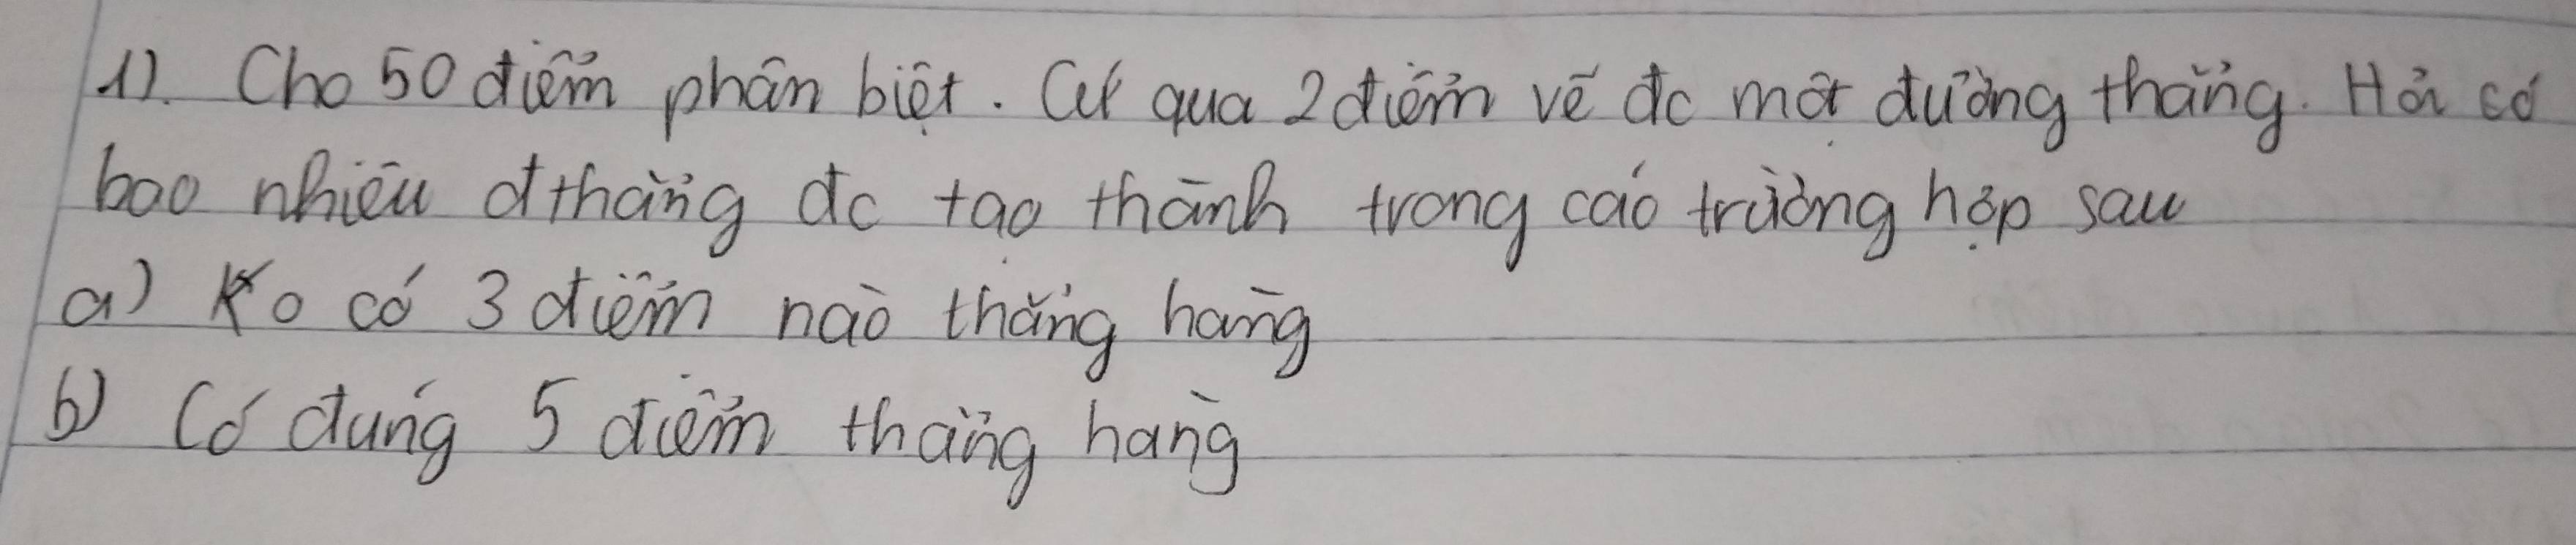 1). Cho 50 điểm phân biệt. Cứ qua 2 điểm vẽ đc một đường thẳng. Hỏi có
bao nhiêu đthẳng đc tạo thành trong các trường hợp sau
a) Ko có 3 điểm nào thẳng hàng
b) Có đúng 5 điểm thẳng hàng